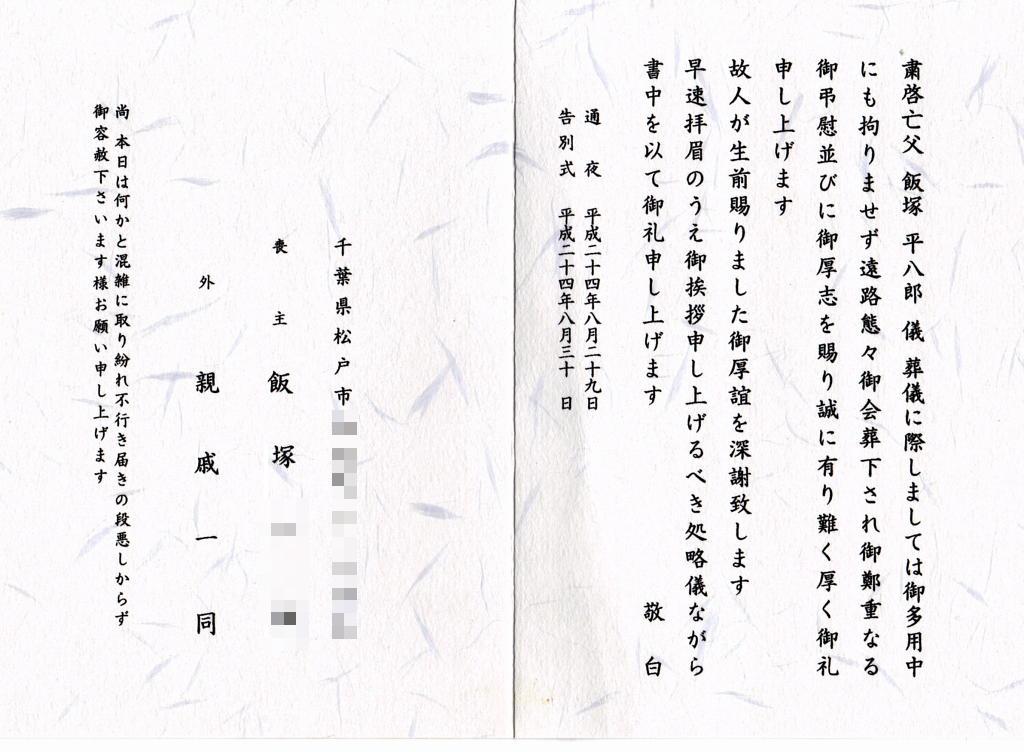 粛啓亡父 飯塚 平八郎 儀 葬儀に際しましては御多用中
にも拘りませず遠路態々御会葬下され御鄭重なる
御弔慰並びに御厚志を賜り誠に有り難く厚く御礼
申し上げます
故人が生前賜りました御厚誼を深謝致します
早速拝眉のうえ御挨拶申し上げるべき処略儀ながら
書中を以て御礼申し上げます 敬 白
通 夜 平成二十四年八月二十九日
告別式 平成二十四年八月三十 日
千葉県松戸市
喪 主 飯 塚
外 親 戚 一 同
尚 本日は何かと混雑に取り紛れ不行き届きの段悪しからず
御容赦下さいます様お願い申し上げます